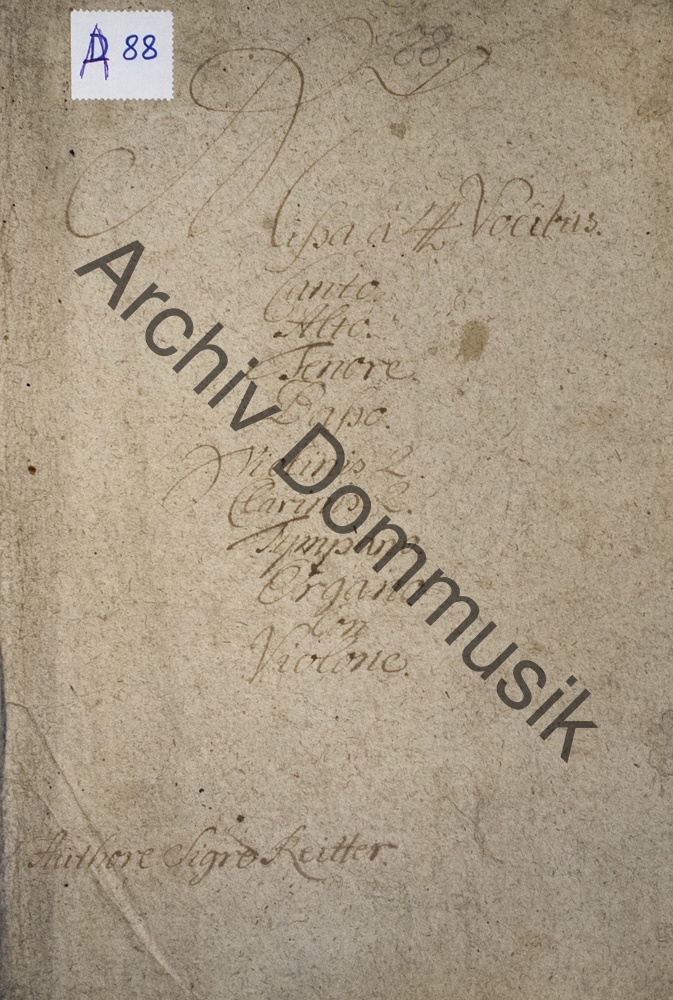 A 88
88.
Missa à 4 Vocibus.
Canto.
Alto.
Tenore.
Basso.
Violinis 2
Clarinis 2.
Tympano
Organo
Con
Violone.
Authore Sigre Reitter
Archiv Dommusik